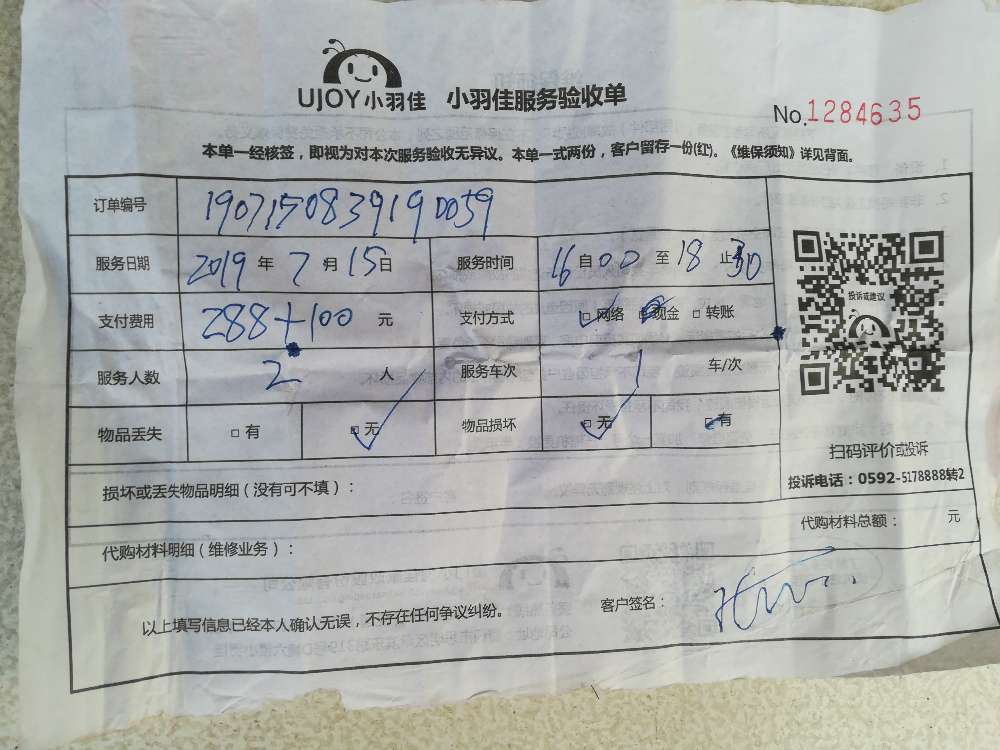 UJOY小羽佳 小羽佳服务验收单
No.1284635
本单一经核签，即视为对本次服务验收无异议。本单一式两份，客户留存一份(红)。《维保须知》详见背面。
订单编号 1907150839190059
服务日期 2019 年 7 月 15 日 服务时间 16 自 00 至 18 止 30
支付费用 288+100 元 支付方式 □网络 □现金 □转账
服务人数 2 人 服务车次 1 车/次
物品丢失 □有 □无 物品损坏 □无 □有
投诉或建议
扫码评价或投诉
投诉电话：0592-5178888转2
损坏或丢失物品明细（没有可不填）：
代购材料明细（维修业务）： 代购材料总额： 元
以上填写信息已经本人确认无误，不存在任何争议纠纷。 客户签名：